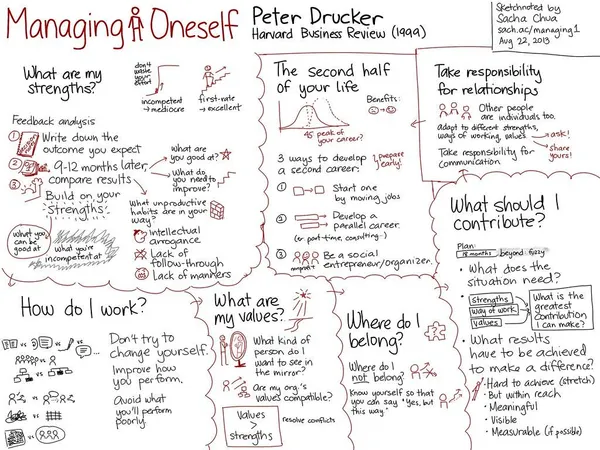 Managing Oneself
Peter Drucker
Harvard Business Review (1999)
Sketchnoted by
Sacha Chua
sach.ac/managing1
Aug 22, 2013
What are my
strengths?
don't
waste
your
effort
incompetent
→ mediocre
first-rate
→ excellent
Feedback analysis
1 Write down the
outcome you expect
2 9-12 months later,
compare results
3 Build on your
strengths
What are
you good at?
What do
you need to
improve?
What unproductive
habits are in your
way?
Intellectual
arrogance
Lack of
follow-through
Lack of manners
what you
can be
good at
what you're
incompetent at
The second half
of your life
Benefits:
45 peak of
your career?
3 ways to develop
a second career:
prepare
early!
1 Start one
by moving jobs
2 Develop a
parallel career
(or part-time, consulting...)
3 Be a social
entrepreneur/organizer.
nonprofit
Take responsibility
for relationships
Other people
are individuals too.
adapt to different strengths,
ways of working, values
→ ask!
Take responsibility for
communication.
→ share
yours!
What should I
contribute?
Plan:
18 months
beyond: fuzzy
• What does the
situation need?
strengths
way of work
values
What is the
greatest
contribution
I can make?
• What results
have to be achieved
to make a difference?
• Hard to achieve (stretch)
• But within reach
• Meaningful
• Visible
• Measurable (if possible)
How do I work?
vs
vs
vs
vs
vs
vs
vs
Don't try to
change yourself.
Improve how
you perform.
Avoid what
you'll perform
poorly.
What are
my values?
What kind of
person do I
want to see in
the mirror?
Are my org.'s
values compatible?
Values
>
strengths
resolve conflicts
Where do I
belong?
Where do I
not belong?
Know yourself so that
you can say "Yes, but
this way."